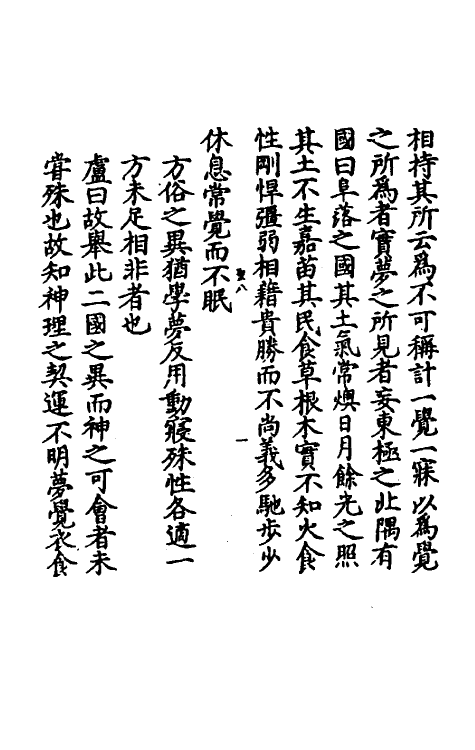 相持其所云爲不可稱計一覺一寐以爲覺
之所爲者實夢之所見者妄東極之北隅有
國曰阜落之國其土氣常燠日月餘光之照
其土不生嘉苗其民食草根木實不知火食
性剛悍彊弱相藉貴勝而不尚義多馳步少
一
聖八
休息常覺而不眠
方俗之異猶學夢反用動寢殊性各適一
方未足相非者也
盧曰故舉此二國之異而神之可會者未
甞殊也故知神理之契運不明夢覺衣食